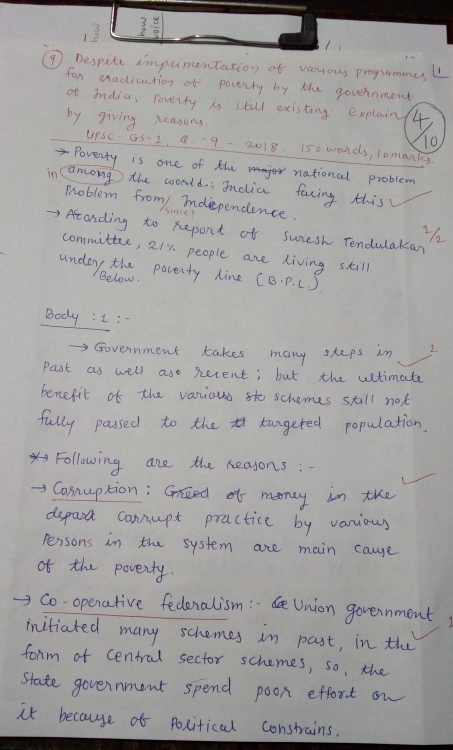 how
how
voice
9 Despite implimentation of various programmes 1
for eradication of poverty by the government
of India, Poverty is still existing. Explain
by giving reasons. 4/10
UPSC - GS-1, Q. - 9 - 2018. 150 words, 10 marks.
→ Poverty is one of the major national problem
in among the world; India facing this
Problem from Independence.
since?
→ Acording to report of Suresh Tendulakar 1/2
committee, 21% people are living still
under the poverty line (B.P.L).
Below.
Body : 1 : -
→ Government takes many steps in 1
Past as well aso recent; but the ultimate
benefit of the various sc schemes still not
fully passed to the targeted population.
* Following are the reasons : -
→ Corruption : Greed of money in the
depast Carrupt practice by various
Persons in the system are main cause
of the poverty.
→ Co-operative federalism :- Union government
initiated many schemes in past, in the 1
form of Central Sector schemes, so, the
State government spend poor effort on
it because of Political Constrains.